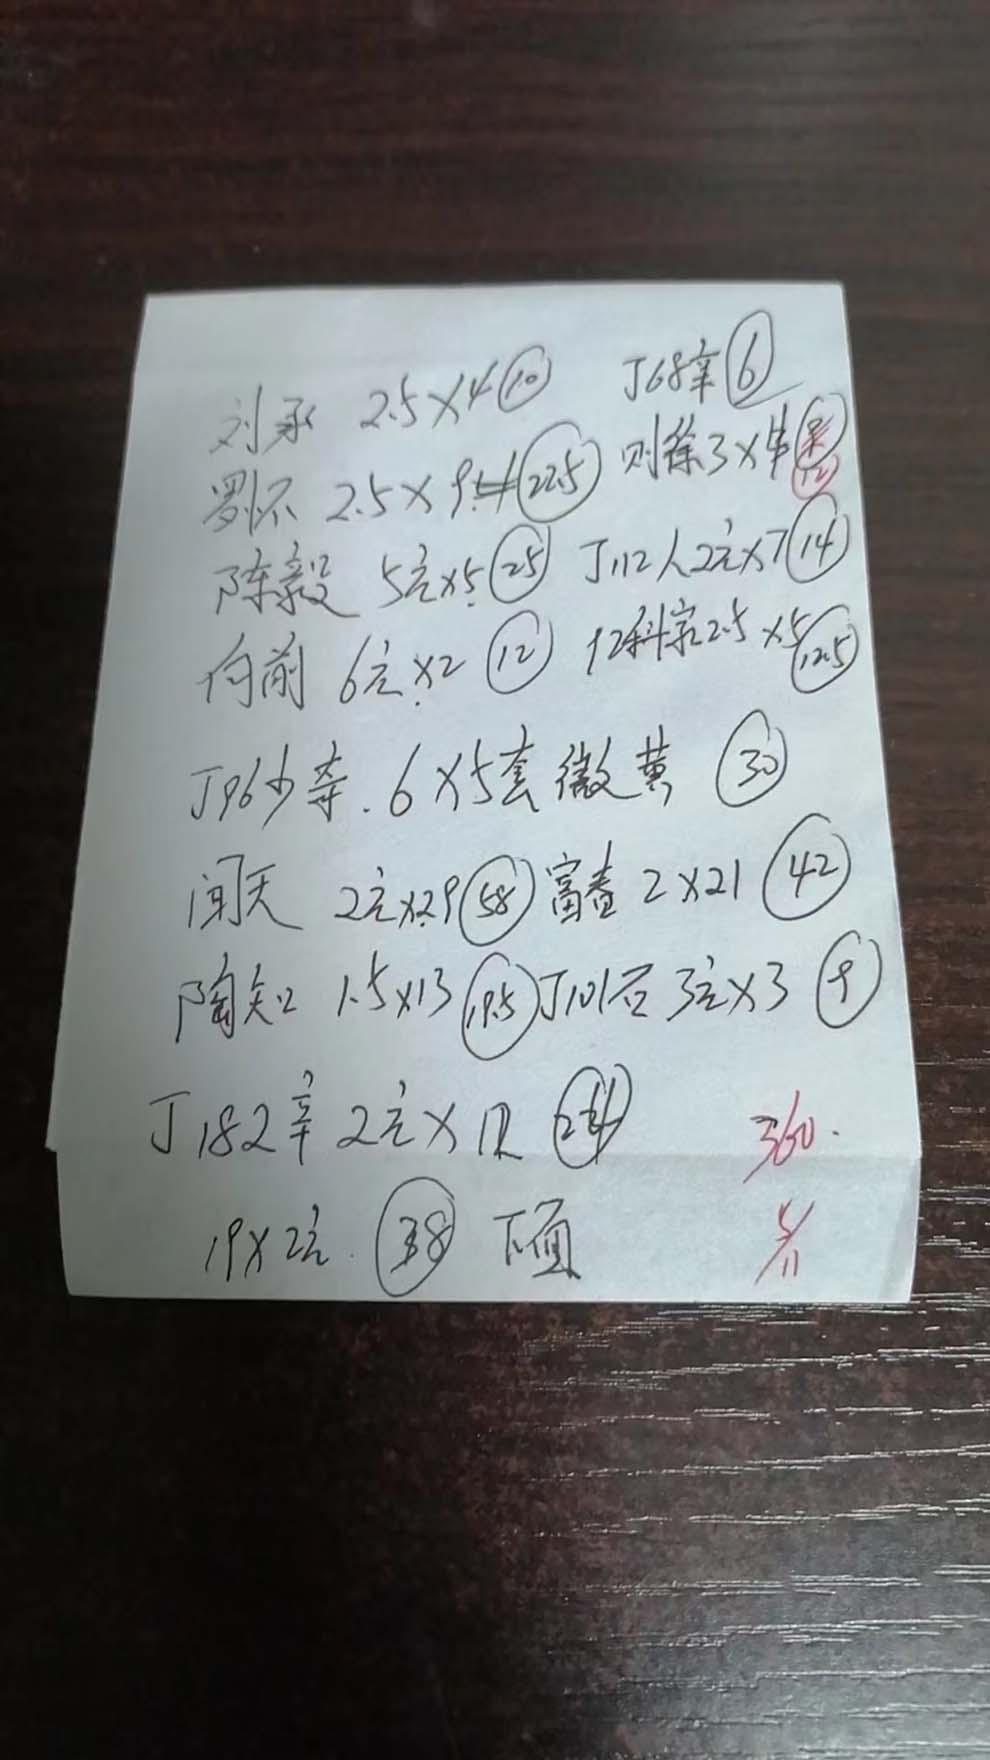 刘承 2.5×4 10 J68辛 6
罗怀 2.5×9 22.5 则徐3× 12
陈毅 5元×5 25 J112人2元×7 14
向前 6元×2 12 92科家2.5×5 12.5
J96少奇.6×5套微黄 30
闻天 2元×29 58 富春 2×21 42
陶知 1.5×13 19.5 J101石 3元×3 9
J182辛 2元×12
19×2元. 38 下面
360.